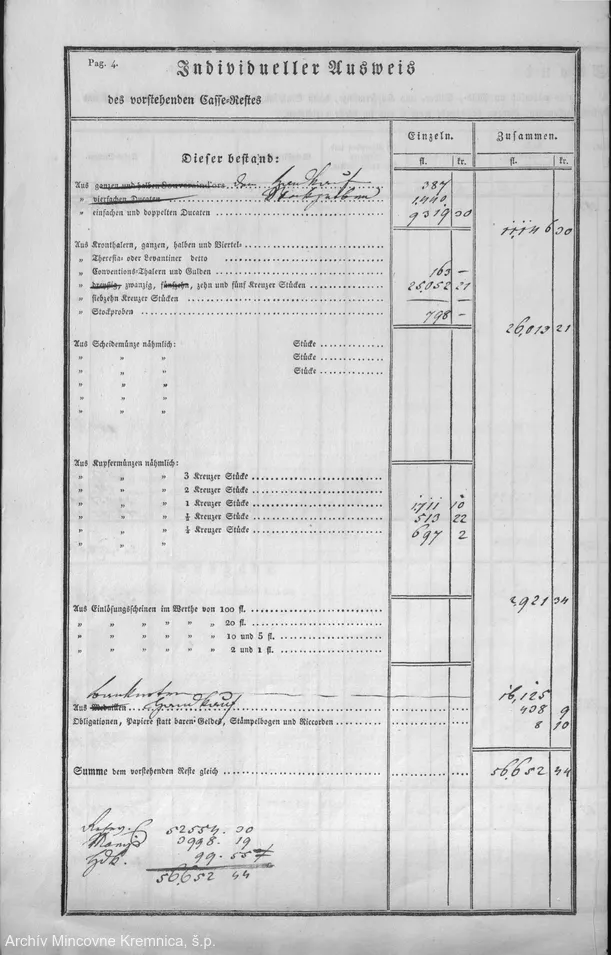 Pag. 4.
Individueller Ausweis
des vorstehenden Casse-Restes
Dieser bestand:
Einzeln. Zusammen.
fl. kr. fl. kr.
Aus ganzen und halben Souveraind'ors 387
„ vierfachen Ducaten 1,440
„ einfachen und doppelten Ducaten 9319 30
11,146 30
Aus Kronthalern, ganzen, halben und Viertel-
„ Theresia- oder Levantiner detto
„ Conventions-Thalern und Gulden 163 —
„ dreyßig, zwanzig, fünfzehn, zehn und fünf Kreuzer Stücken 25,052 21
„ siebzehn Kreuzer Stücken —
„ Stockproben 798 —
26,013 21
Aus Scheidemünze nähmlich: Stücke
„ „ „ Stücke
„ „ „ Stücke
„ „ „
„ „ „
„ „ „
Aus Kupfermünzen nähmlich:
„ „ „ 3 Kreuzer Stücke
„ „ „ 2 Kreuzer Stücke
„ „ „ 1 Kreuzer Stücke 1,711 10
„ „ „ ½ Kreuzer Stücke 513 22
„ „ „ ¼ Kreuzer Stücke 697 2
„ „ „
2921 34
Aus Einlösungsscheinen im Werthe von 100 fl.
„ „ „ „ „ „ 20 fl.
„ „ „ „ „ „ 10 und 5 fl.
„ „ „ „ „ „ 2 und 1 fl.
Banknoten 16,125
Aus Medaillen 438 9
Obligationen, Papiere statt baren Geldes, Stämpelbogen und Riccorden 8 10
Summe dem vorstehenden Reste gleich 56652 44
52554. 30
3998. 19
99. 55
56,652 44
Archív Mincovne Kremnica, š.p.